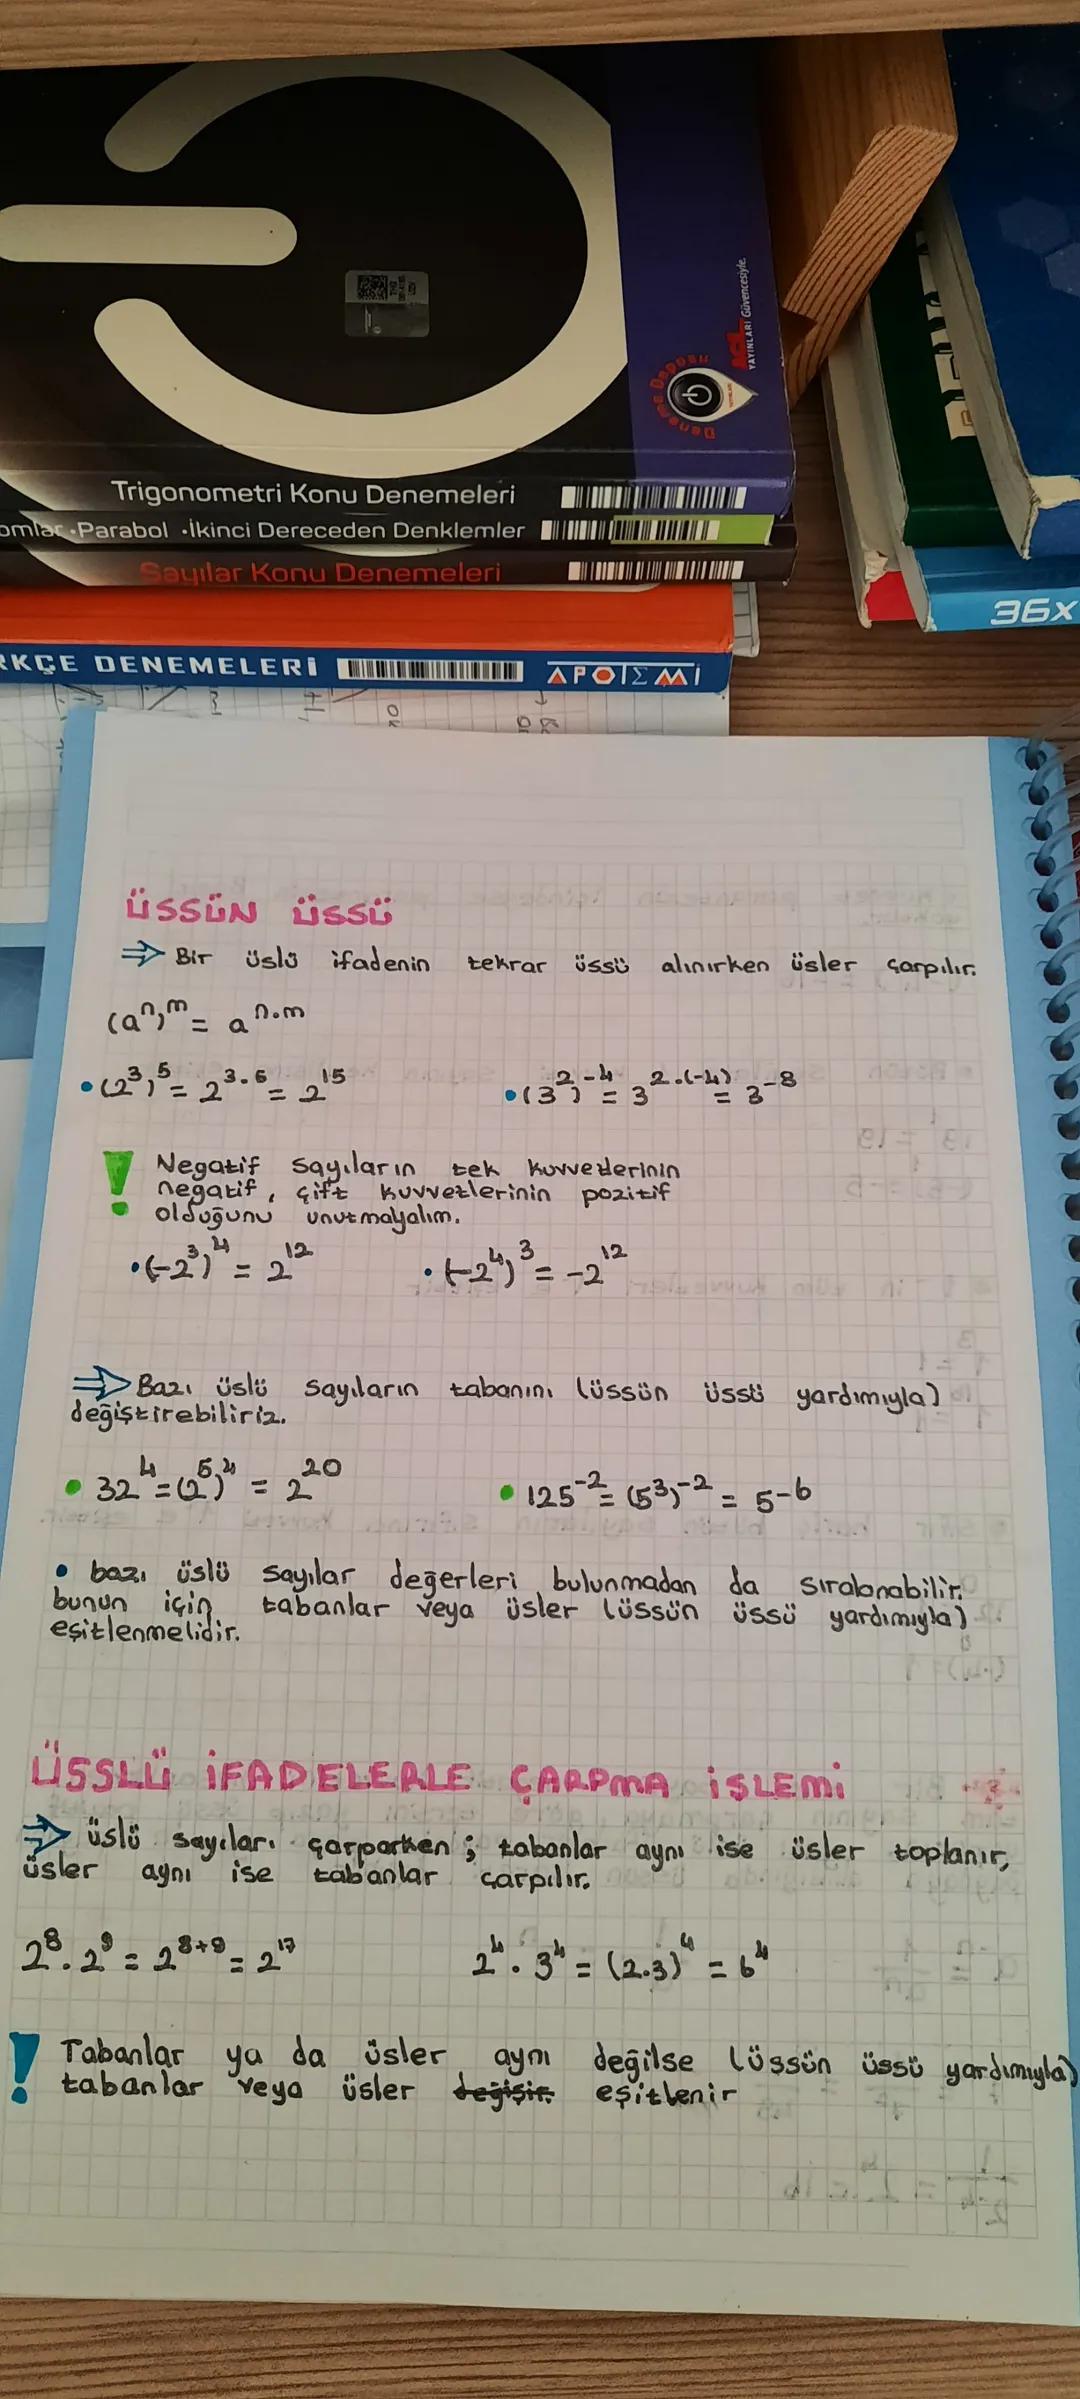 AÇI YAYINLARI Güvencesiyle.
Deneme Deposu
Trigonometri Konu Denemeleri
omlar • Parabol • İkinci Dereceden Denklemler
Sayılar Konu Denemeleri
36x
RKÇE DENEMELERİ
APOIEMİ
ÜSSÜN ÜSSÜ
⇒ Bir üslü ifadenin tekrar üssü alınırken üsler çarpılır.
(aⁿ)ᵐ = aⁿ·ᵐ
• (2³)⁵ = 2³·⁵ = 2¹⁵ • (3²)⁻⁴ = 3²·⁽⁻⁴⁾ = 3⁻⁸
! Negatif sayıların tek kuvvetlerinin
negatif, çift kuvvetlerinin pozitif
olduğunu unutmayalım.
• (-2³)⁴ = 2¹² • (-2⁴)³ = -2¹²
⇒ Bazı üslü sayıların tabanını (üssün üssü yardımıyla)
değiştirebiliriz.
• 32⁴ = (2⁵)⁴ = 2²⁰ • 125⁻² = (5³)⁻² = 5⁻⁶
• bazı üslü sayılar değerleri bulunmadan da sıralanabilir.
bunun için tabanlar veya üsler (üssün üssü yardımıyla)
eşitlenmelidir.
ÜSSLÜ İFADELERLE ÇARPMA İŞLEMİ
⇒ üslü sayıları çarparken; tabanlar aynı ise üsler toplanır,
üsler aynı ise tabanlar çarpılır.
2⁸ . 2⁹ = 2⁸⁺⁹ = 2¹⁷ 2⁴ . 3⁴ = (2.3)⁴ = 6⁴
! Tabanlar ya da üsler aynı değilse (üssün üssü yardımıyla)
tabanlar veya üsler değişir. eşitlenir